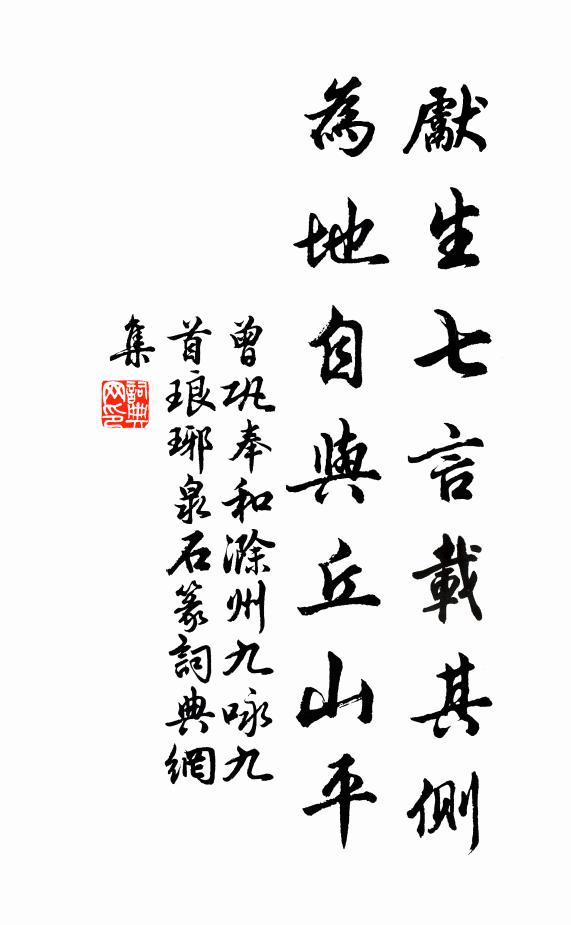 獻生七言載其側
為地自與丘山平
曾巩奉和滁州九咏九
首琅琊泉石篆詞典網
集
詞典
网印